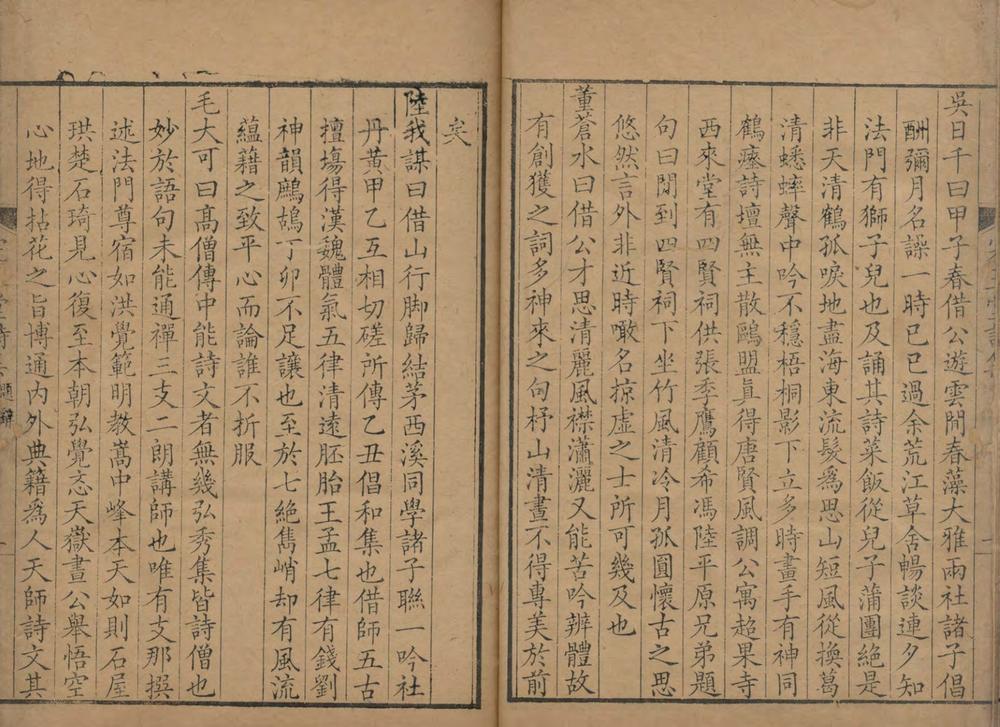 吳日千曰甲子春借公遊雲間春藻大雅兩社諸子倡
酬彌月名譟一時已巳過余荒江草舍暢談連夕知
法門有獅子兒也及誦其詩菜飯從兒子蒲團絶是
非天清鶴孤唳地盡海東流髮爲思山短風從換葛
清蟋蟀聲中吟不穩梧桐影下立多時畫手有神同
鶴瘞詩壇無主散鷗盟眞得唐賢風調公寓超果寺
西來堂有四賢祠供張季鷹顧希馮陸平原兄弟題
句曰閒到四賢祠下坐竹風清冷月孤圓懷古之思
悠然言外非近時噉名掠虛之士所可幾及也
董蒼水曰借公才思清麗風襟瀟灑又能苦吟辨體故
有創獲之詞多神來之句杼山清晝不得專美於前
矣
陸我謀曰借山行脚歸結茅西溪同學諸子聯一吟社
丹黃甲乙互相切磋所傳乙丑倡和集也借師五古
擅塲得漢魏體氣五律清遠胚胎王孟七律有錢劉
神韻鷓鴣丁卯不足讓也至於七絶雋峭却有風流
蘊藉之致平心而論誰不折服
毛大可曰高僧傳中能詩文者無幾弘秀集皆詩僧也
妙於語句未能通禪三支二朗講師也唯有支那撰
述法門尊宿如洪覺範明教嵩中峰本天如則石屋
珙楚石琦見心復至本朝弘覺忞天嶽晝公舉悟空
心地得拈花之旨博通內外典籍爲人天師詩文其